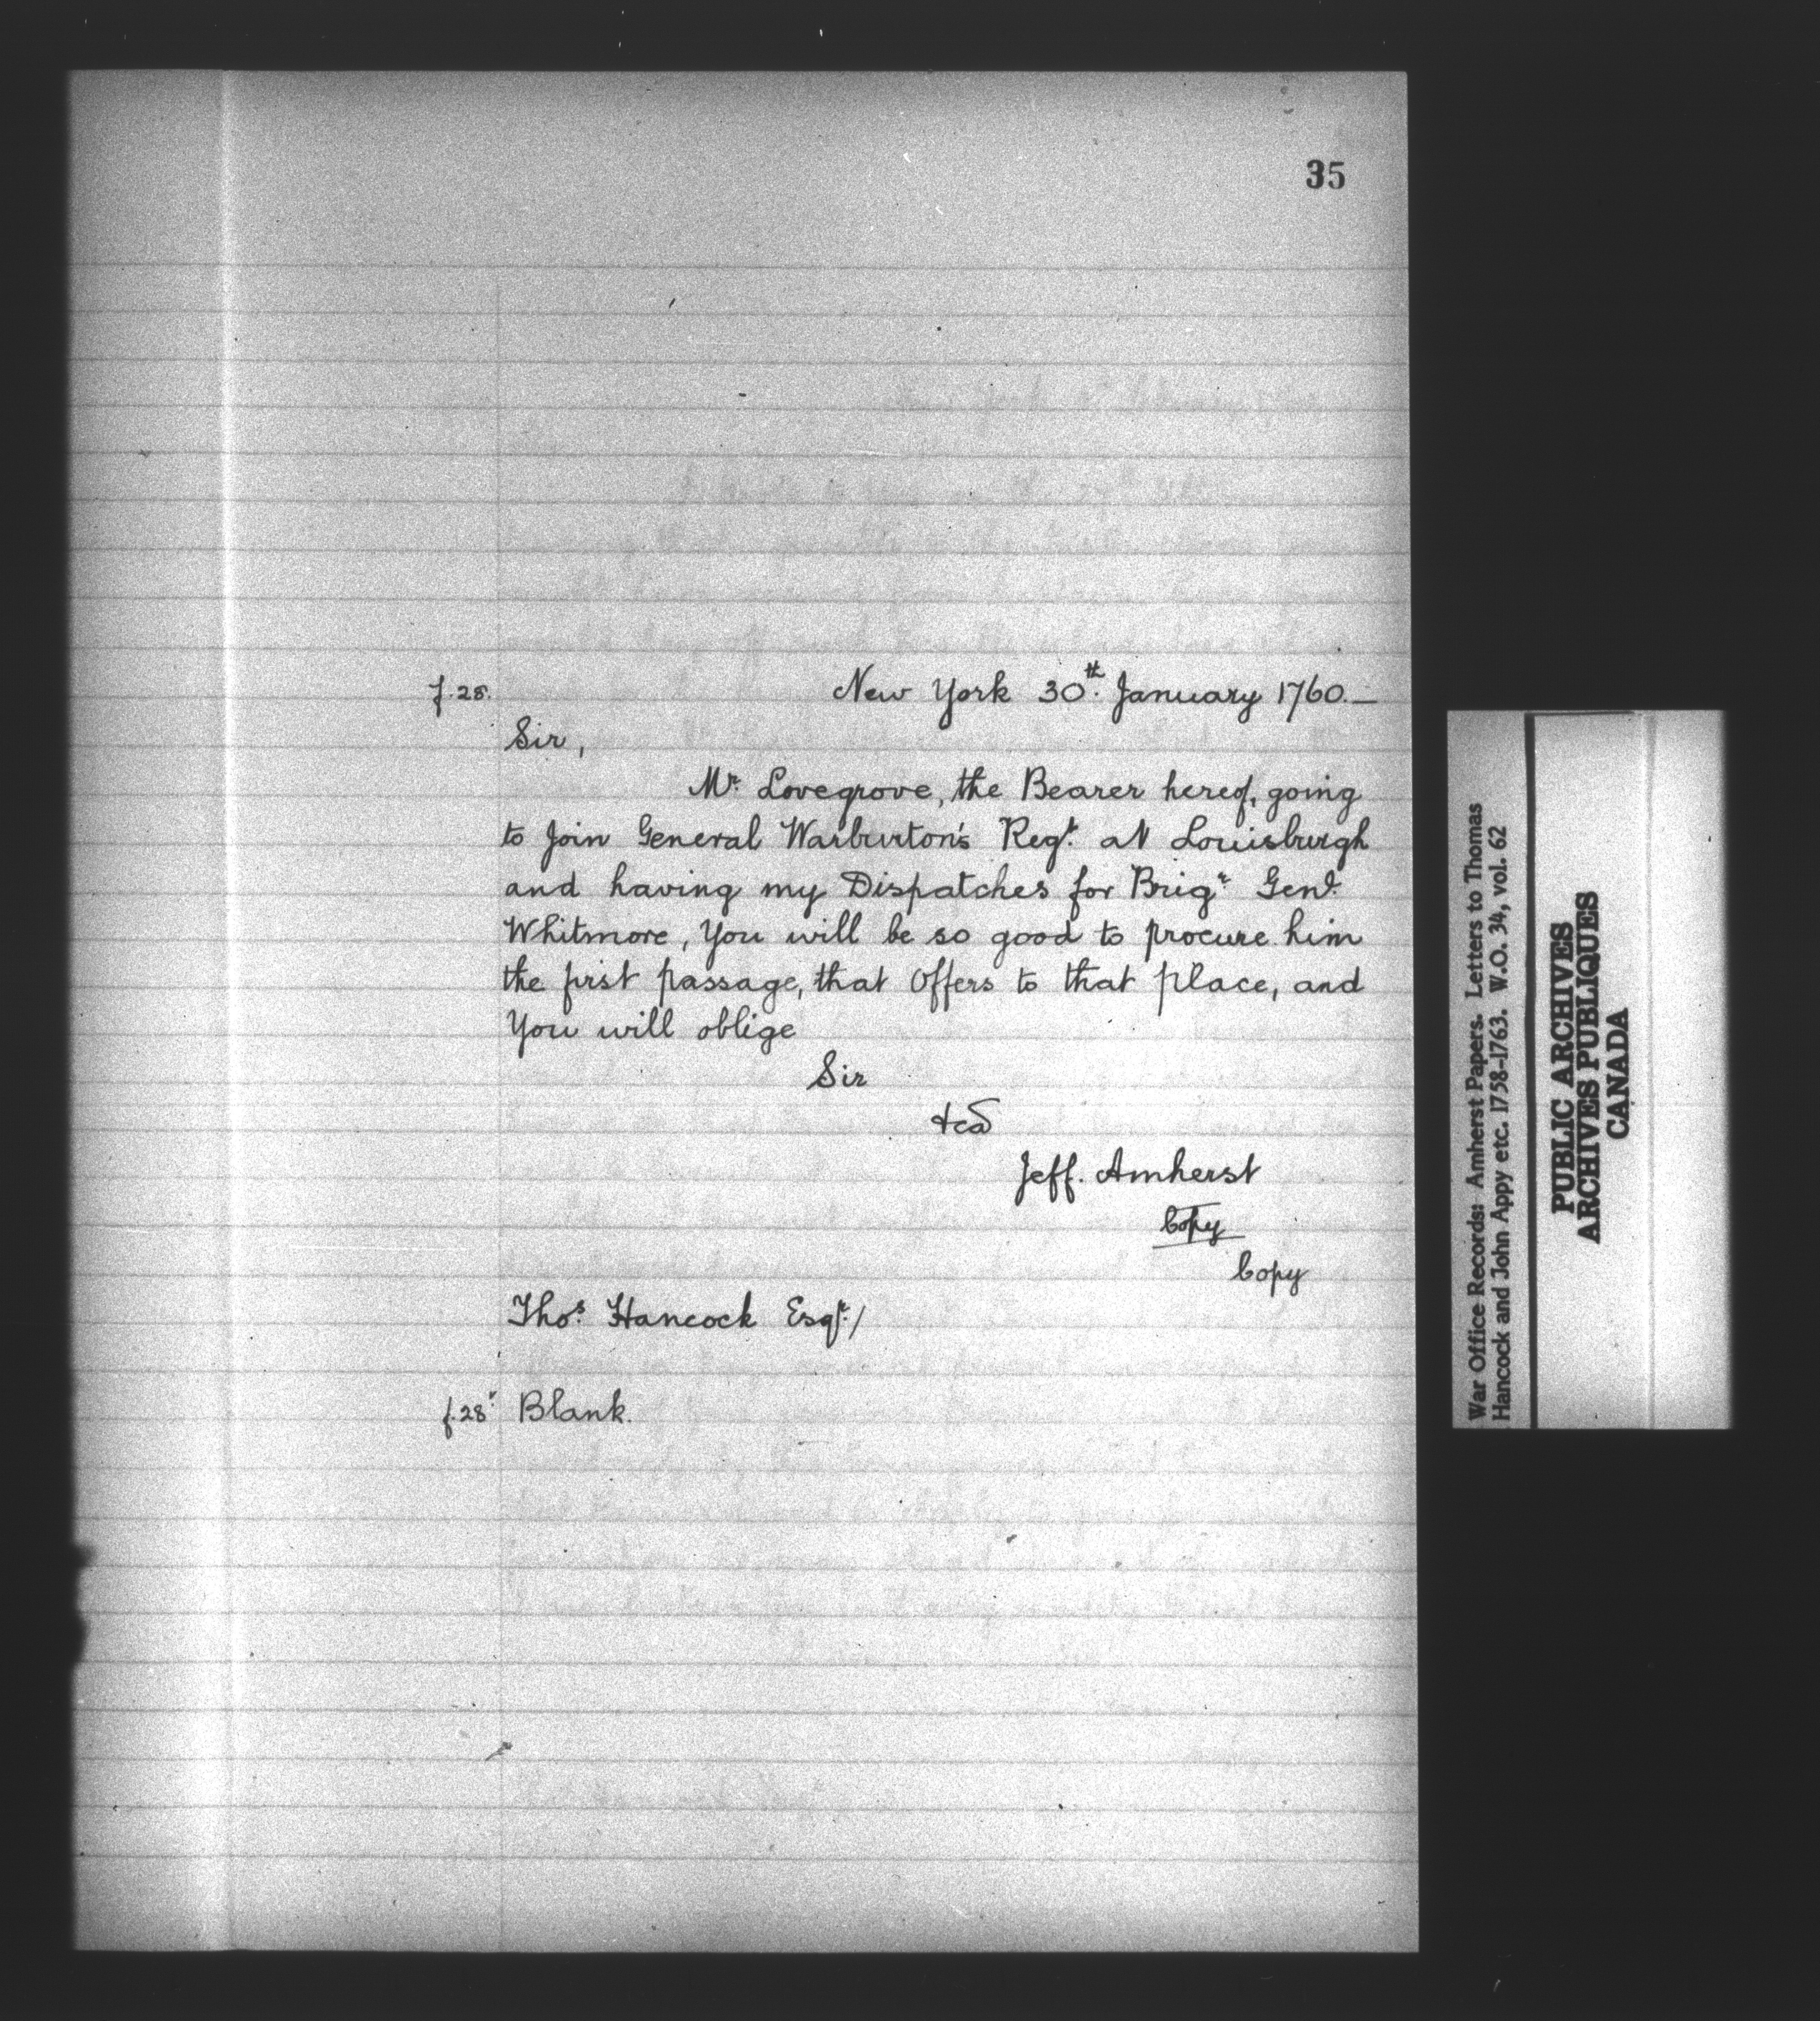 35
f.28. New York 30th. January 1760.—
Sir,
Mr. Lovegrove, the Bearer hereof, going
to Join General Warburton's Regt. at Louisburgh
and having my Dispatches for Brigr. Genl.
Whitmore, You will be so good to procure him
the first passage, that Offers to that place, and
You will oblige
Sir
&ca
Jeff. Amherst
Copy
Copy
Thos. Hancock Esqr./
f.28v Blank.
War Office Records: Amherst Papers. Letters to Thomas
Hancock and John Appy etc. 1758-1763. W.O. 34, vol. 62
PUBLIC ARCHIVES
ARCHIVES PUBLIQUES
CANADA